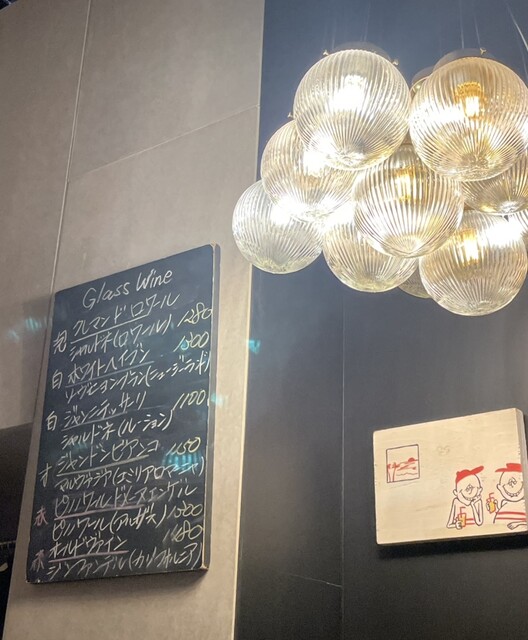 Glass Wine
泡 クレマンドロワール
シャルドネ(ロワール) 1280
白 ホワイトヘイブン 1300
ソーヴィニヨンブラン(ニュージーランド)
白 ジャン 1100
シャルドネ(ルーション)
オ ジャンドンビアンコ 1150
マルヴァジア(エミリアロマーニャ)
赤 ピノノワール
ピノノワール(アルザス) 1300
赤 オールドヴァイン 1180
ジンファンデル(カリフォルニア)